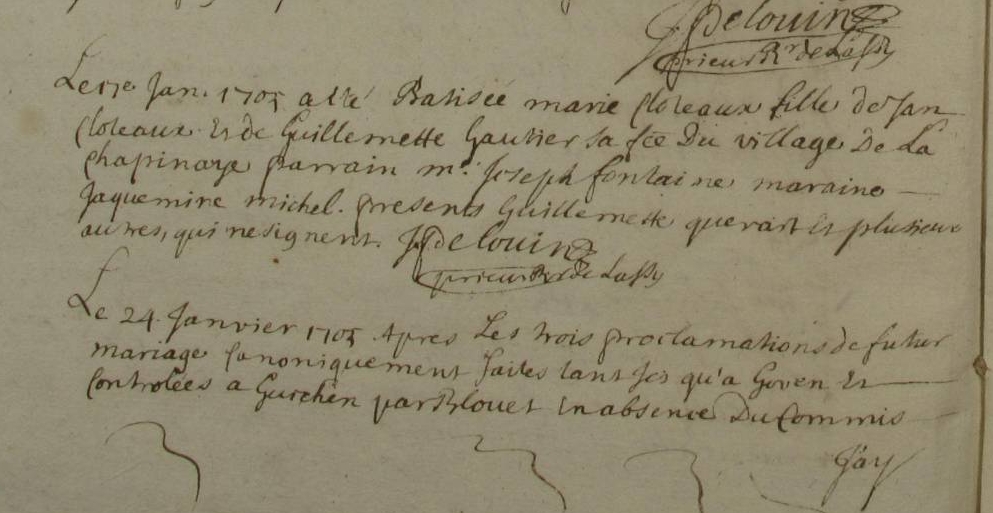 J Delouin
prieur Rr de Lassy
Le 17e Jan. 1705 a été Batisée marie Cloteaux fille de Jan
Cloteaux Et de Guillemette Gautier sa fee Du village De La
chapinaye parrain mr. Joseph fontaine maraine
Jaquemine michel. presents Guillemette et plusieurs
autres, qui ne signent. J Delouin
prieur Rr de Lassy
Le 24. Janvier 1705 Apres Les trois proclamations de futur
mariage Canoniquement faites tant Jci qu'a Goven Et
Controlées a Guichen par Blouet En absence Du Commis
J'ay